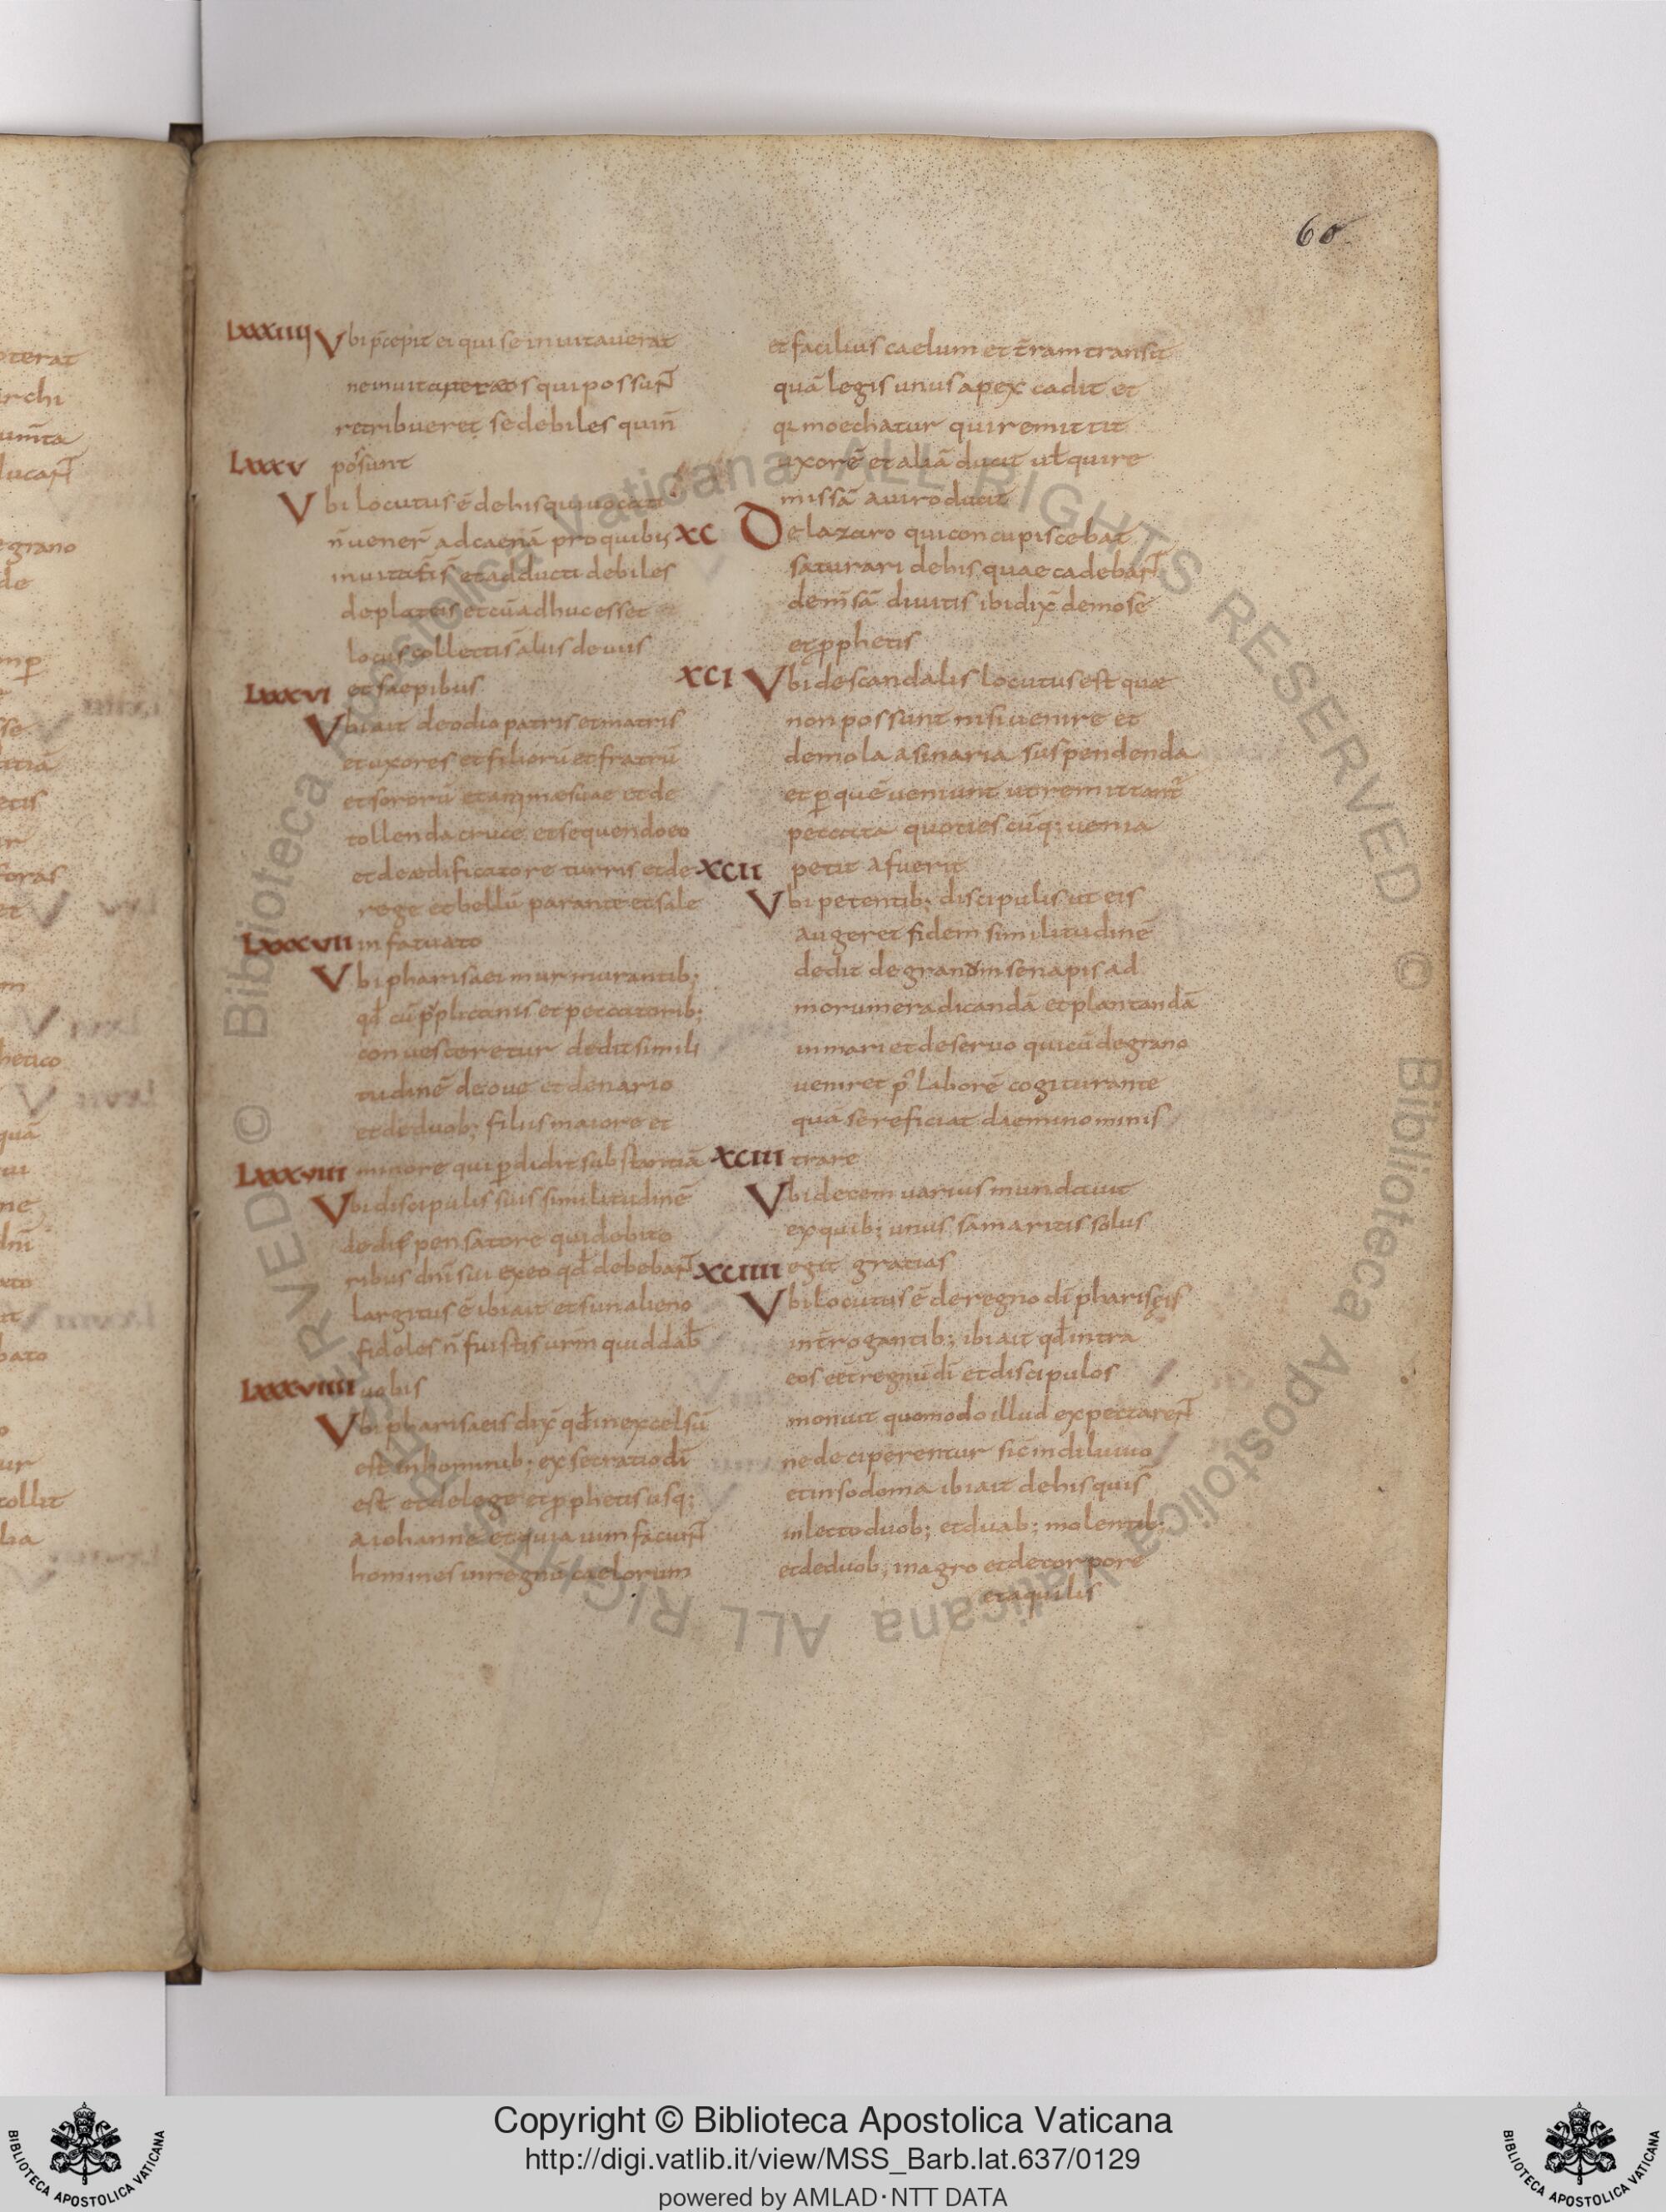 60
LXXXIIII Vbi p̄cepit ei qui se inuitauerat
ne inuitaret eos qui possuɴt̄
retribueret se debiles qui n̄
LXXXV possunt
Vbi locutus ē de his qui uocati
n̄ uener̄ ad caenā pro quibus
inuitatis et adducti debiles
de plateis et cū adhuc esset
locus collectis aliis de uiis
LXXXVI et saepibus
Vbi ait de odio patris et matris
et uxores et filiorū et fratrū
et sororū et animae suae et de
tollenda cruce et sequendo eo
et de aedificatore turris et de
rege et bellū parante et sale
LXXXVII infatuato
Vbi pharisaei murmurantib;
qđ cū puplicanis et peccatorib;
conuesceretur dedit simili
tudinē de oue et denario
et de duob; filiis maiore et
LXXXVIII minore qui ꝑdidit substantiā
Vbi discipulis suis similitudinē
de dispensatore qui debito
ribus dn̄i sui ex eo qđ debebaɴt̄
largitus ē ibi ait et si in alieno
fideles n̄ fuistis urm̄ quid dab̄
LXXXVIIII uobis
Vbi pharisaeis dix̄ qđ in excelsū
est in hominib; exsecratio dī
est et de lege et prophetis usq;
a iohanne et quia uim faciuɴt̄
homines in regnū caelorum
et facilius caelum et t̄ram transit
quā legis unus apex cadit et
qi moechatur qui remittit
uxorē et aliā ducit ut̄ qui re
missā a uiro ducit
XC De lazaro qui concupiscebat
saturari de his quae cadebaɴt̄
de mēsā diuitis ibi dix̄ de mose
et prophetis
XCI Vbi de scandalis locutus est quae
non possunt nisi uenire et
de mola asinaria suspendenda
et ꝑ quē ueniunt ut remittant̄
peccata quoties cūq; uenia
XCII petit a fuerit
Vbi petentib; discipulis ut eis
augeret fidem similitudinē
dedit de grano in senapis ad
morum eradicandā et plantandā
in mari et de seruo qui cū de grano
ueniret p̄ laborē cogiturante
qua se reficiat daemino minis
XCIII trare
Vbi decem uarius mundauit
ex quib; unus samaritis solus
XCIIII egit gratias
Vbi locutus ē de regno dī pharisęis
int̄rogantib; ibi ait qđ intra
eos eēt regnū dī et discipulos
monuit quomodo illud expectareɴt̄
ne deciperentur sic in diluuio
et in sodoma ibi ait de his quis
in lecto duob; et duab; molentib;
et de duob; in agro et de corpore
et aquilis
Copyright © Biblioteca Apostolica Vaticana
http://digi.vatlib.it/view/MSS_Barb.lat.637/0129
powered by AMLAD·NTT DATA